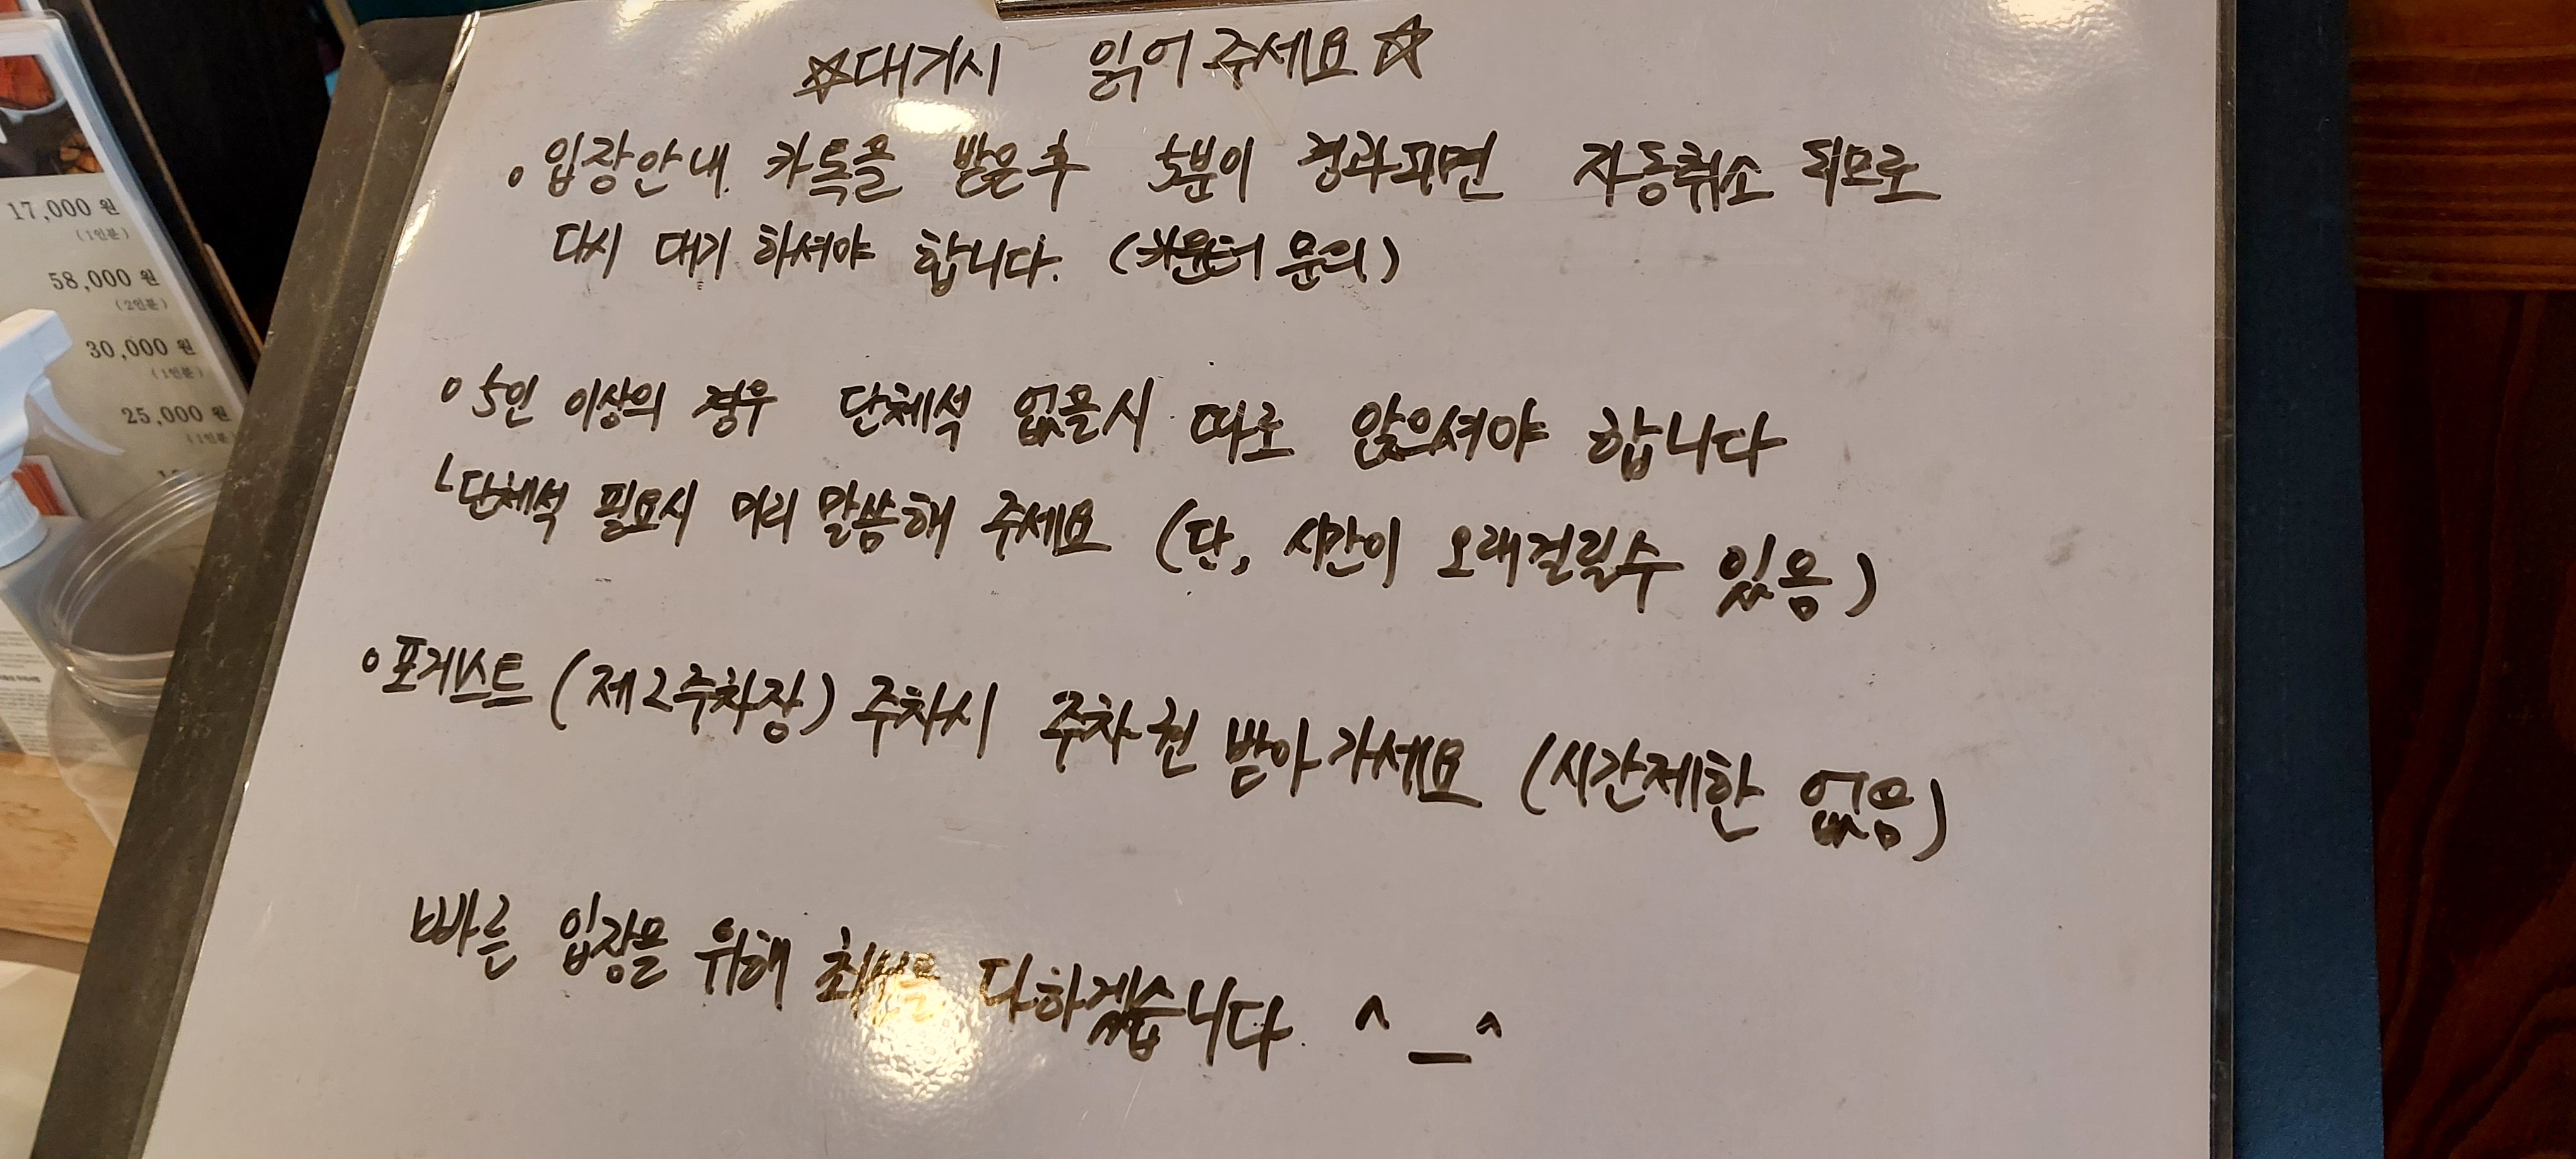 ☆대기시 읽어주세요☆
o 입장안내 카톡을 받은후 5분이 경과되면 자동취소 되므로
다시 대기 하셔야 합니다. (카운터 문의)
o 5인 이상의 경우 단체석 없을시 따로 앉으셔야 합니다
ㄴ단체석 필요시 미리 말씀해 주세요 (단, 시간이 오래걸릴수 있음)
o 포레스트 (제2주차장) 주차시 주차권 받아가세요 (시간제한 없음)
빠른 입장을 위해 최선을 다하겠습니다 ^_^
17,000 원
(1인분)
58,000 원
(2인분)
30,000 원
(1인분)
25,000 원
(1인분)